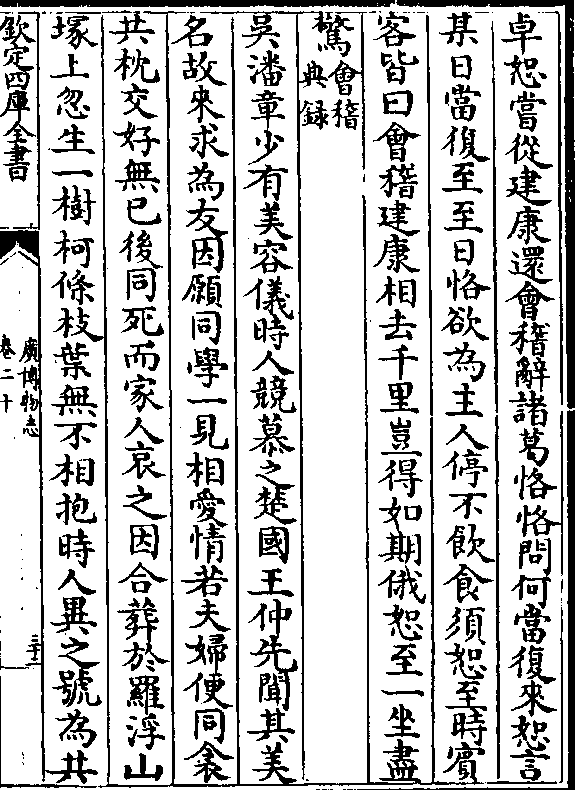 卓恕嘗從建康還會稽辭諸葛恪恪問何當復來恕言
某日當復至至日恪欲為主人停不飲食須恕至時賓
客皆曰會稽建康相去千里豈得如期俄恕至一坐盡
驚會稽
典録
吳潘章少有美容儀時人競慕之楚國王仲先聞其美
名故來求為友因願同學一見相愛情若夫婦便同衾
共枕交好無已後同死而家人哀之因合葬於羅浮山
塚上忽生一樹柯條枝葉無不相抱時人異之號為共
欽定四庫全書
廣博物志
卷二十
三十二